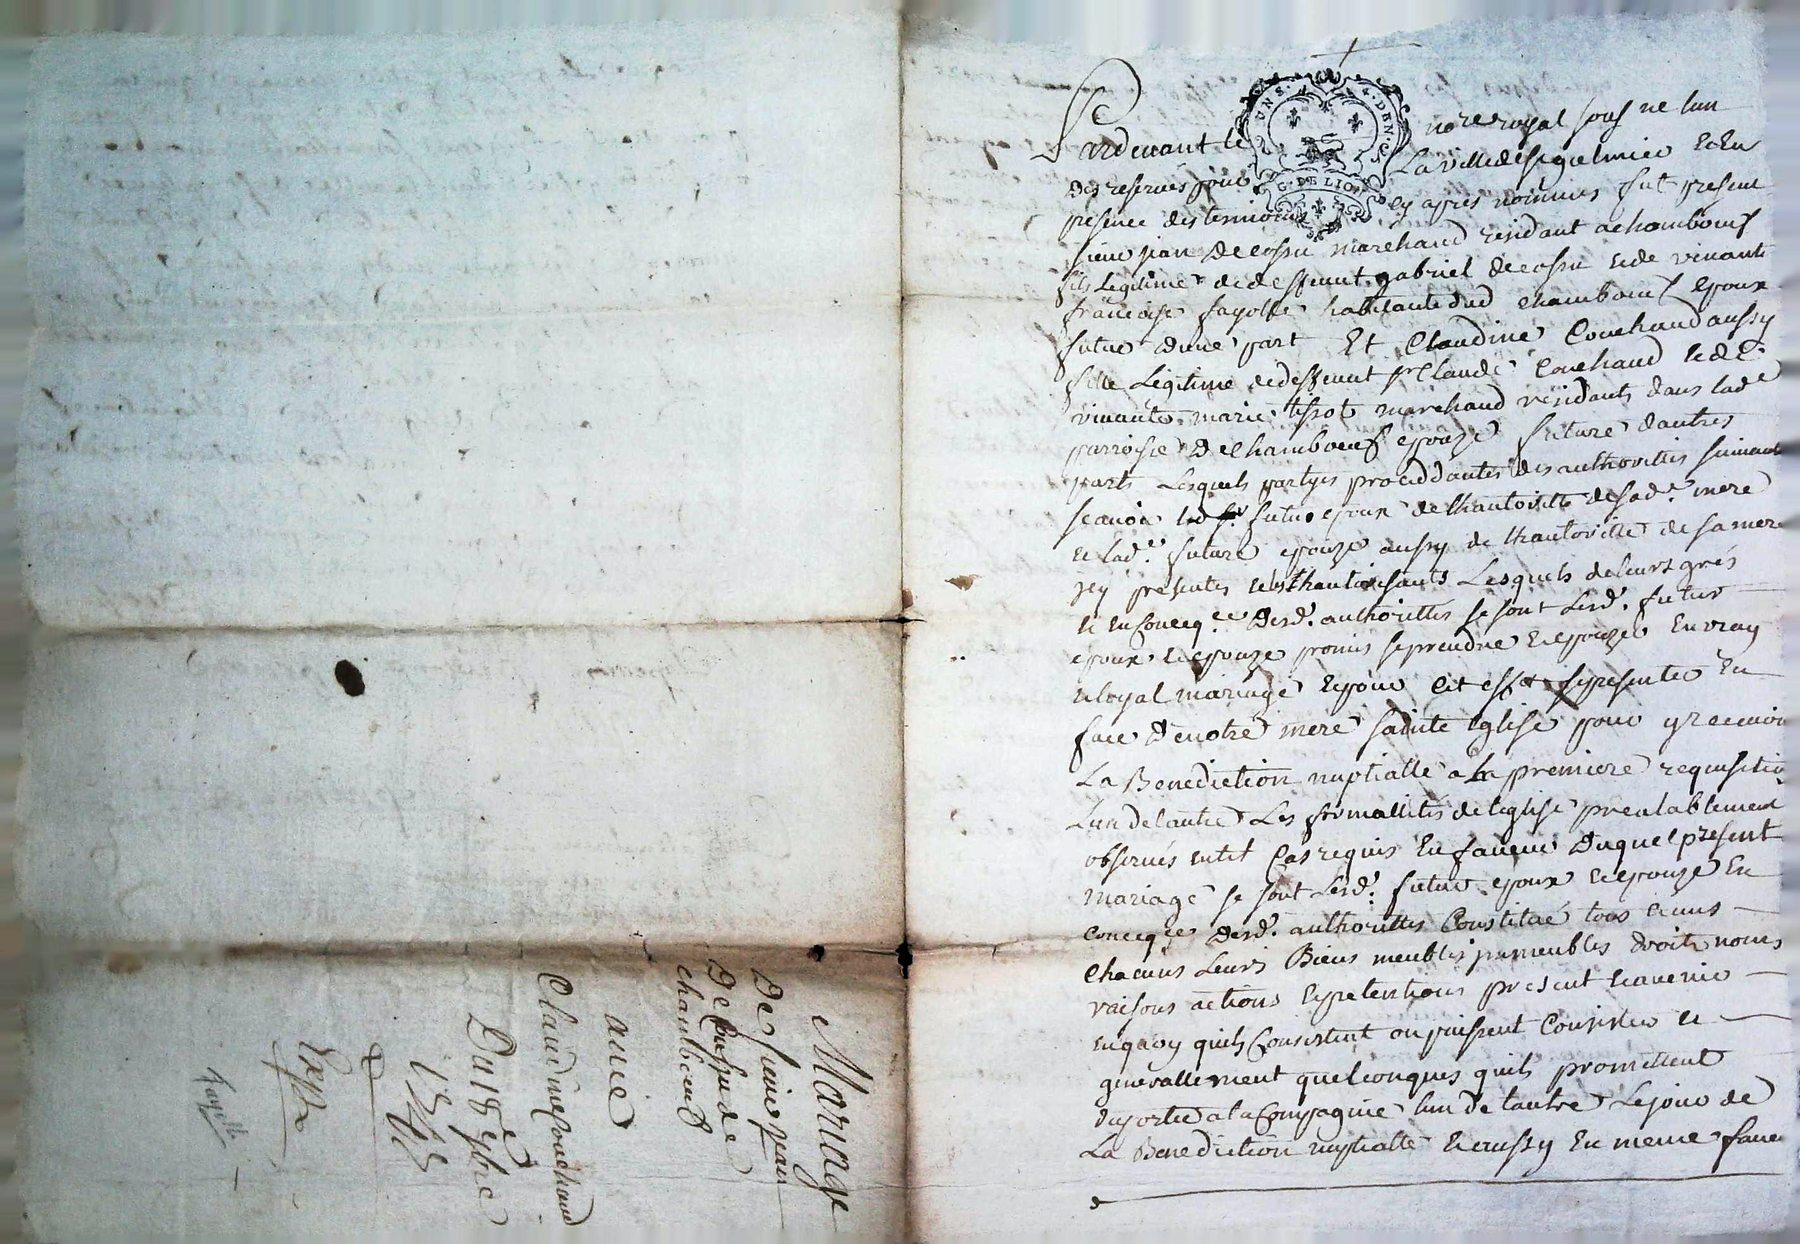 Mariage
De sieur jean
De cossu de
chambeuf
avec
Claudine Couchaud
Du 18e 7bre
1768
Expdn
fayolle
UNS. 4. DEN.
G. DE LION
Pardevant le nore royal sous ne lun
des reservés pour La ville de st galmier Et En
presence des temoins cy après nommés fut present
sieur jean Decossu marchand residant a chambeuf
fils Legitime de deffeunt gabriel decossu et de vivante
françoise fayolle habitante dud chambeuf Epoux
futur dune part Et Claudine Couchaud aussy
fille Légitime de deffeunt sr Claude Couchaud et de
vivante marie tissot marchand residants dans lade
parroisse De Chambeuf epouze future dautres
parts Lesquels partyes proceddantes des authorittés suivantes
scavoir led sr futur epoux de lhautoritté de sade mere
et lade future epouze aussy de lhautoritté de sa mere
jcy presentes et les hautorisants Lesquels de leurs grés
et En Concequce Desd. authorittés se sont Lesd. futur
epoux et epouze promis se prendre et epouzer En vray
et loyal mariage Et pour cet effet se presenter En
face De notre mere sainte Eglise pour y recevoir
La Benediction nuptialle a la premiere requisition
Lun de lautre Les formallités de leglise prealablement
observés en tel Cas requis En faveur Duquel present
mariage se sont Lesd. futur epoux et epouze En
concequce Desd. authorittés Constitué tous et uns
Chacuns Leurs Biens meubles jmmeubles droits noms
raisons actions Et pretentions present et avenir
en quoy quils Consistent ou puissent Consister et
generallement quelconques quils promettent
daporter a la Compagnie lun de lautre Le jour de
La Benediction nuptialle et aussy En meme faveur